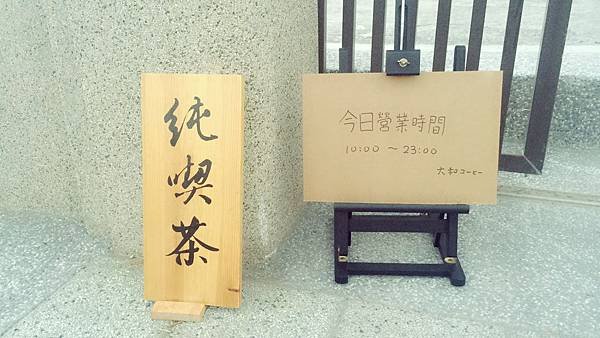 純喫茶
今日營業時間
10:00 ～ 23:00
大和コーヒー